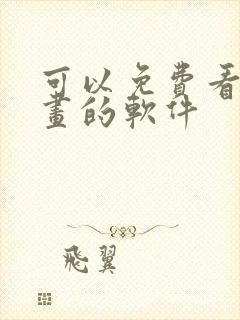 可以免費看
畫的軟件
飛翼